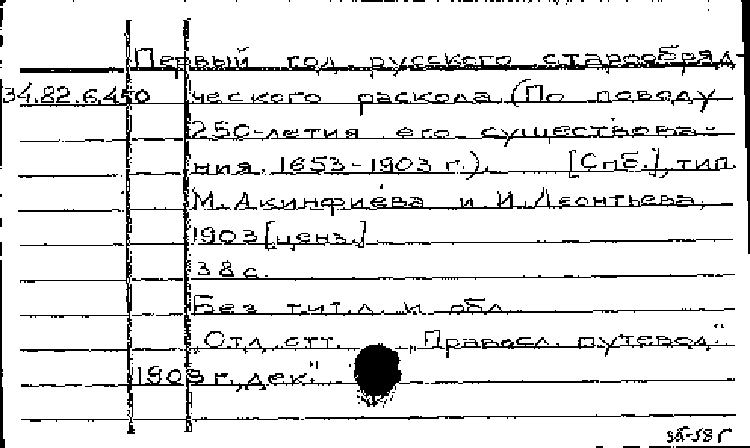 Первый год русского старообряд-
34.82.6.450 ческого раскола. (По поводу
250-летия его существова-
ния. 1653-1903 г.). [Спб.], тип.
М. Акинфиева и И. Леонтьева,
1903 [ценз.]
38 с.
Без тит. л. и обл.
Отд. отт. "Правосл. путевод."
1903 г., дек."